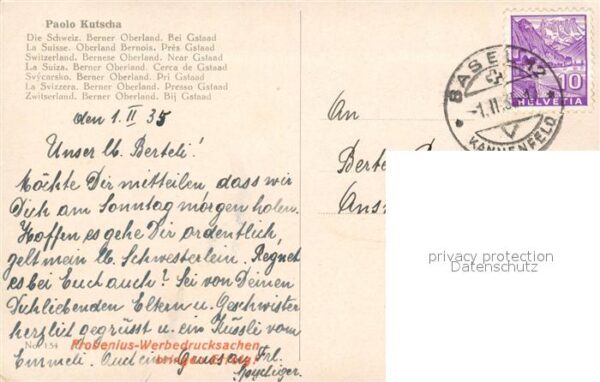 Paolo Kutscha
Die Schweiz. Berner Oberland. Bei Gstaad
La Suisse. Oberland Bernois. Près Gstaad
Switzerland. Bernese Oberland. Near Gstaad
La Suiza. Berner Oberland. Cerca de Gstaad
Svýcarsko. Berner Oberland. Pri Gstaad
La Svizzera. Berner Oberland. Presso Gstaad
Zwitserland. Berner Oberland. Bij Gstaad
BASEL 12
-1.II.3
KANNENFELD
10
HELVETIA
den 1. II 35
Unser lb. Berteli!
Möchte Dir mitteilen, dass wir
Dich am Sonntag morgen holen.
Hoffen, es gehe Dir ordentlich,
gelt mein lb. Schwesterlein. Regnet
es bei Euch auch? Sei von Deinen
Dichliebenden Eltern u. Geschwister
herzlich gegrüsst u. ein Küssli vom
Emmeli. Auch einen Gruss an Frl.
An
Berte
Ans
No. 154
Frobenius-Werbedrucksachen
bringen Erfolg!
privacy protection
Datenschutz